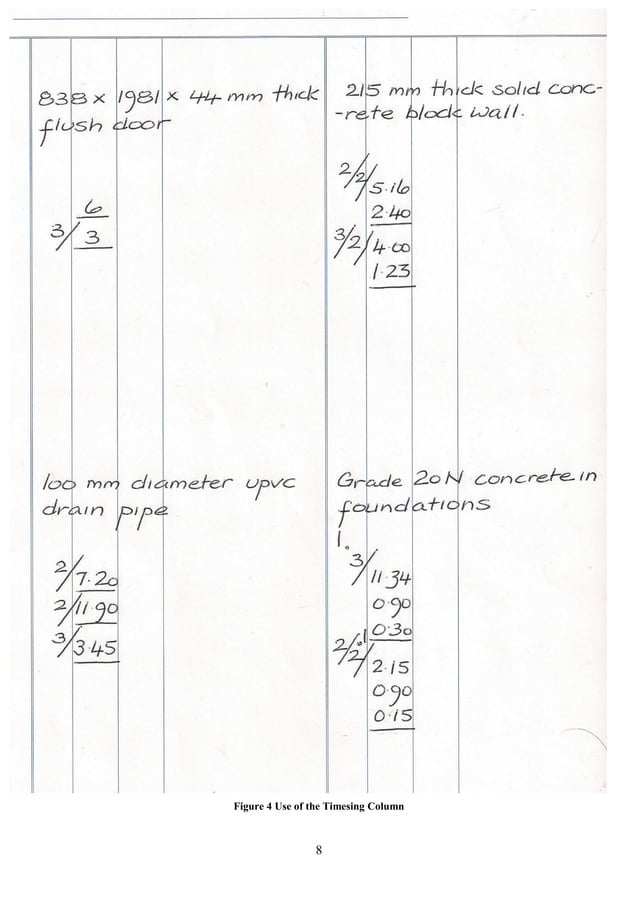 838 x 1981 x 44 mm thick
flush door
6
3/ 3
215 mm thick solid conc-
-rete block wall.
2/2/ 5.16
2.40
3/2/ 4.00
1.23
100 mm diameter upvc
drain pipe
2/ 7.20
2/ 11.90
3/ 3.45
Grade 20N concrete in
foundations
1.
3/ 11.34
0.90
0.30
2/.1/2/ 2.15
0.90
0.15
Figure 4 Use of the Timesing Column
8